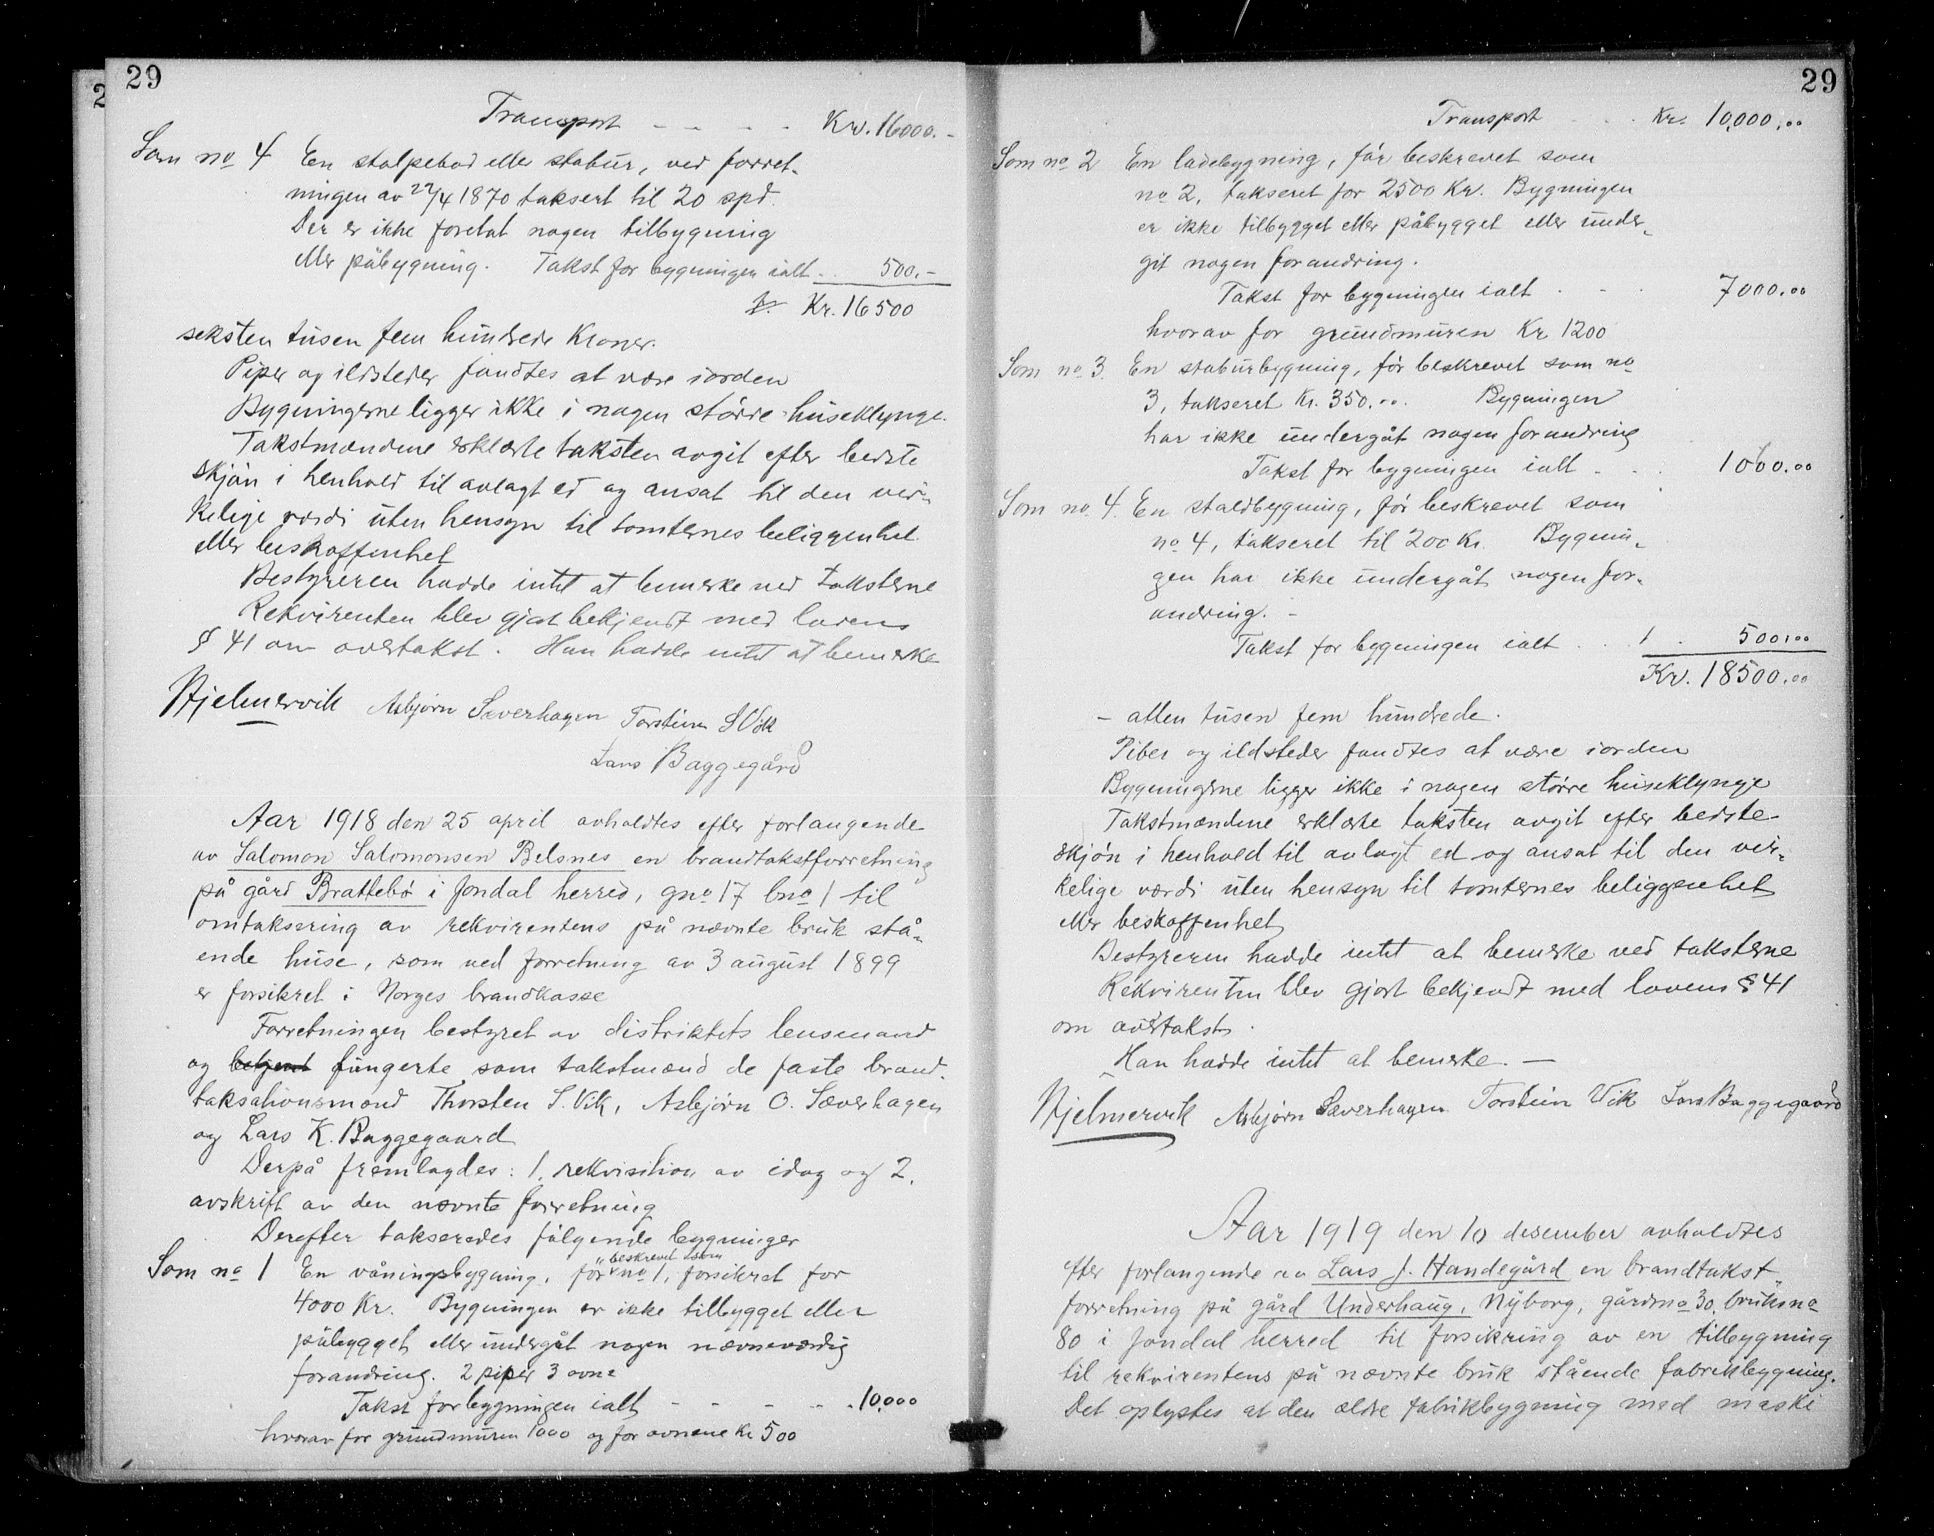 29
Transport - - - - Kr. 16000.-
Som no 4 En stolpebod eller stabur, ved forret-
ningen av 27/4 1870 taksert til 20 spd.
Der er ikke foretat nogen tilbygning
eller påbygning. Takst for bygningen ialt - . 500.-
Kr. 16500
seksten tusen fem hundrede Kroner.
Piper og ildsteder fandtes at være iorden
Bygningerne ligger ikke i nogen större huseklynge.
Takstmændene erklærte taksten avgit efter bedste
skjön i henhold til avlagt ed og ansat til den vir-
kelige værdi uten hensyn til tomternes beliggenhet
eller beskaffenhet
Bestyreren hadde intet at bemerke ved taksterne
Rekvirenten blev gjort bekjendt med lovens
§ 41 om overtakst. Han hadde intet at bemerke
Hjelmervik Asbjørn Sæverhagen Torstein S Vik
Lars Baggegård
Aar 1918 den 25 april avholdtes efter forlangende
av Salomon Salomonsen Belsnes en brandtakstforretning
på gård Brattebø i Jondal herred, gno 17 bno 1 til
omtaksering av rekvirentens på nævnte bruk stå-
ende huse, som ved forretning av 3 august 1899
er forsikret i Norges brandkasse
Forretningen bestyret av distriktets lensmand
og betjent fungerte som takstmænd de faste brand-
taksationsmænd Thorsten S. Vik, Asbjørn O. Sæverhagen
og Lars K. Baggegaard
Derpå fremlagdes: 1, rekvisition av idag og 2,
avskrift av den nævnte forretning
Derefter takseredes følgende bygninger
Som no 1 En våningsbygning, før beskrevet som no 1, forsikret for
4000 Kr. Bygningen er ikke tilbygget eller
påbygget eller undergåt nogen nævneværdig
forandring. 2 piper 3 ovne
Takst for bygningen ialt - - - - - 10,000
hvorav for grundmuren 1000 og for ovnene Kr 500
29
Transport - - - Kr. 10,000,00
Som no 2 En ladebygning, før beskrevet som
no 2, takseret for 2500 Kr. Bygningen
er ikke tilbygget eller påbygget eller under-
git nogen forandring.
Takst for bygningen ialt - - - 7000.00
hvorav for grundmuren Kr 1200
Som no 3. En staburbygning, før beskrevet som no
3, takseret Kr. 350.00. Bygningen
har ikke undergåt nogen forandring
Takst for bygningen ialt - - - 1000.00
Som no 4. En staldbygning, før beskrevet som
no 4, takseret til 200 Kr. Bygnin-
gen har ikke undergåt nogen for-
andring. -
Takst for bygningen ialt . . . 500.00
Kr. 18500.00
- atten tusen fem hundrede.
Piber og ildsteder fandtes at være iorden
Bygningerne ligger ikke i nogen større huseklynge
Takstmændene erklærte taksten avgit efter bedste
skjøn i henhold til avlagt ed og ansat til den vir-
kelige værdi uten hensyn til tomternes beliggenhet
eller beskaffenhet
Bestyreren hadde intet at bemerke ved taksterne
Rekvirenten blev gjort bekjendt med lovens § 41
om overtakst.
Han hadde intet at bemerke. -
Hjelmervik Asbjørn Sæverhagen Torstein Vik Lars Baggegaard
Aar 1919 den 10 desember avholdtes
efter forlangende av Lars J. Handegård en brandtakst-
forretning på gård Underhaug, Nyborg, gårdsno 30, bruksno
80 i Jondal herred til forsikring av en tilbygning
til rekvirentens på nævnte bruk stående fabrikbygning.
Det oplystes at den ældre fabrikbygning med maski